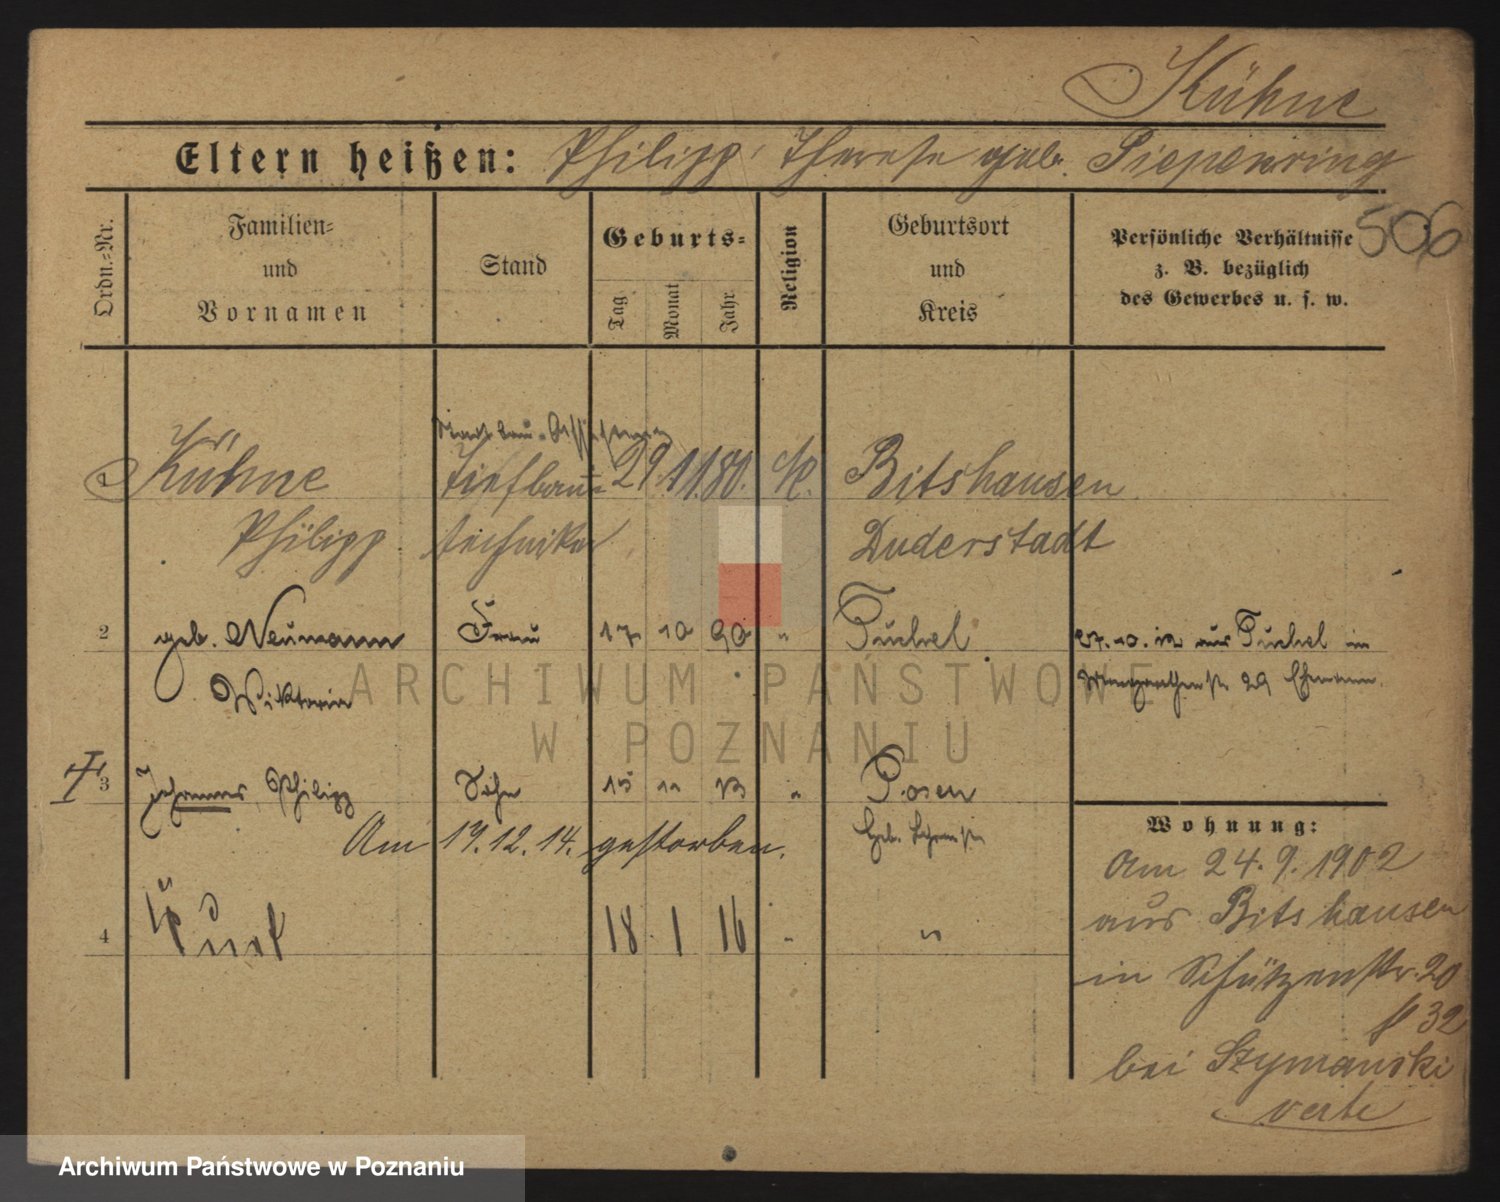 Kühne
Eltern heißen: Philipp, Therese geb. Piepenring
506
Ordn.-Nr.
Familien-
und
Vornamen
Stand
Geburts-
Tag
Monat
Jahr
Religion
Geburtsort
und
Kreis
Persönliche Verhältnisse
z. B. bezüglich
des Gewerbes u. s. w.
Stadtbau-Assistent
1 Kühne Tiefbau- 29. 11. 80. k. Bilshausen
Philipp techniker Duderstadt
2 geb. Neumann Frau 17 10 90 " Tuchel
Wiktoria
27. 10. 12 aus Tuchel in
29 Ehemann.
3 Johannes Philipp Sohn 15 11 13 " Posen
Am 19. 12. 14. gestorben.
4 Kurt 18 1 16 " "
Wohnung:
Am 24. 9. 1902
aus Bilshausen
in Schützenstr. 20
32
bei Szymanski
verte
ARCHIWUM PAŃSTWOWE
W POZNANIU
Archiwum Państwowe w Poznaniu